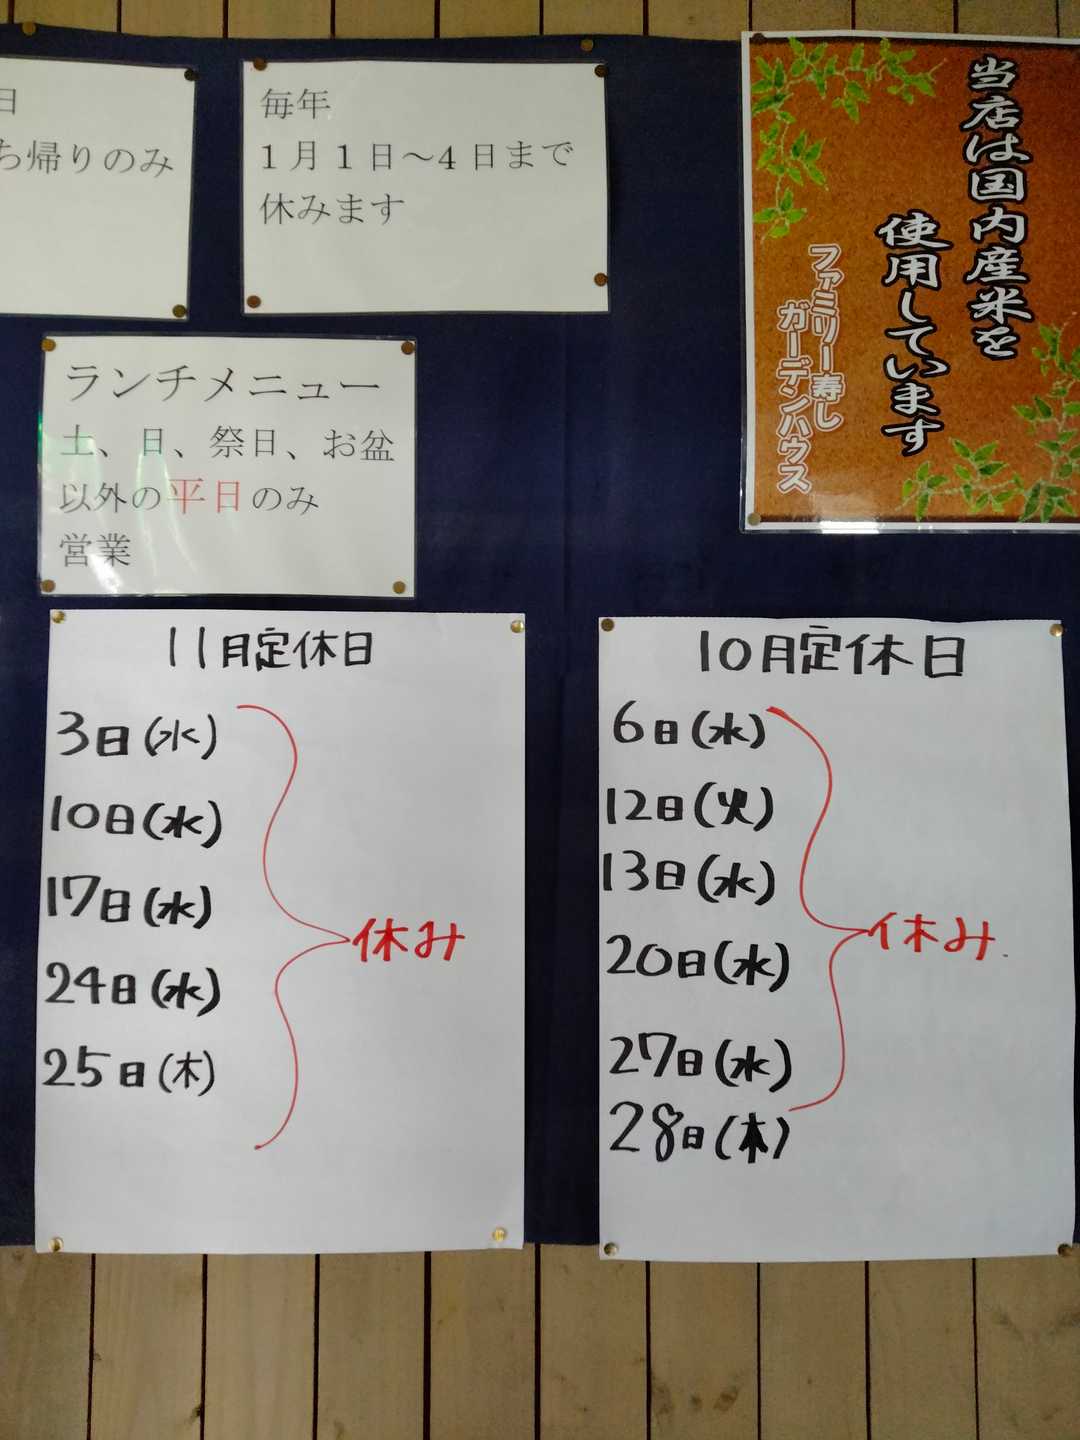 日
ち帰りのみ
毎年
1月1日～4日まで
休みます
当店は国内産米を
使用しています
ファミリー寿し
ガーデンハウス
ランチメニュー
土、日、祭日、お盆
以外の平日のみ
営業
11月定休日
3日(水)
10日(水)
17日(水)
24日(水)
25日(木)
休み
10月定休日
6日(水)
12日(火)
13日(水)
20日(水)
27日(水)
28日(木)
休み